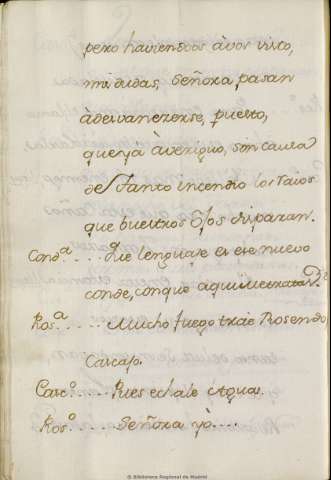 pero haviendoos àvos visto,
mis dudas, Señora pasan
à desvanezerse, puesto,
que yà àverigüo, son causa
de tanto incendio los raios
que buestros Ojos disparan.
Condª.... Que lenguaje es ese nuevo
conde, con que aqui me tratas?
Rosª..... Mucho fuego trae Rosendo
Carcaso.
Carcº.... Pues echale Agua.
Rosº.... Señora yò....
© Biblioteca Regional de Madrid